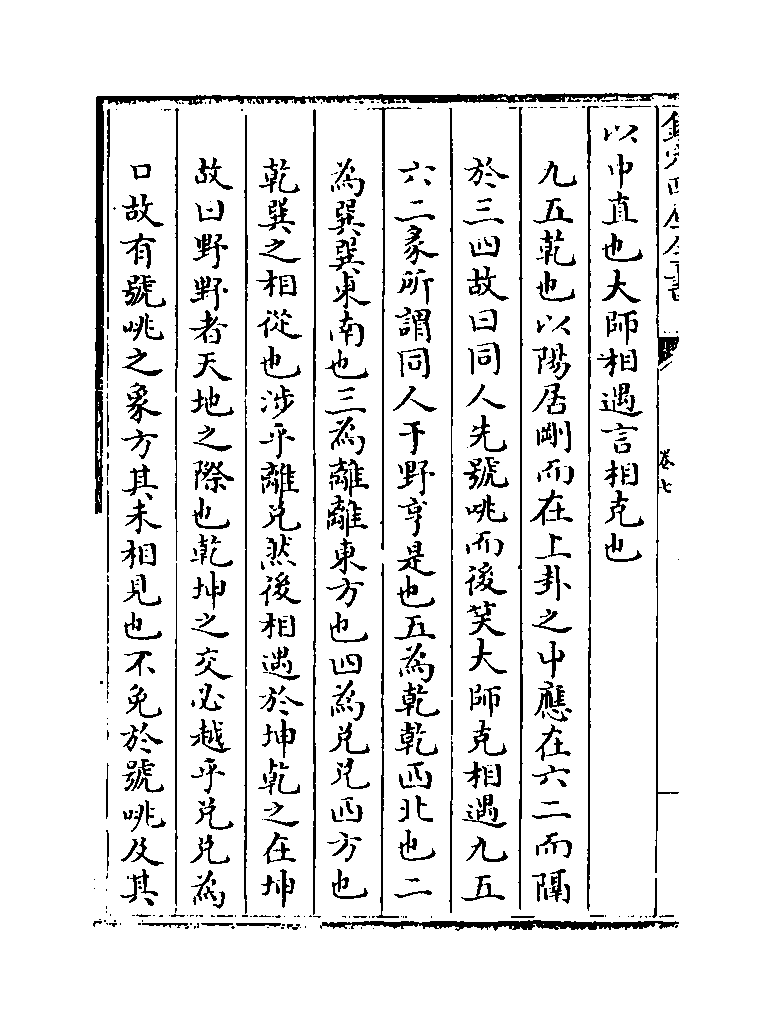 欽定四庫全書
卷七
以中直也大師相遇言相克也
九五乾也以陽居剛而在上卦之中應在六二而隔
於三四故曰同人先號咷而後笑大師克相遇九五
六二彖所謂同人于野亨是也五為乾乾西北也二
為巽巽東南也三為離離東方也四為兌兌西方也
乾巽之相從也涉乎離兌然後相遇於坤乾之在坤
故曰野野者天地之際也乾坤之交必越乎兌兌為
口故有號咷之象方其未相見也不免於號咷及其